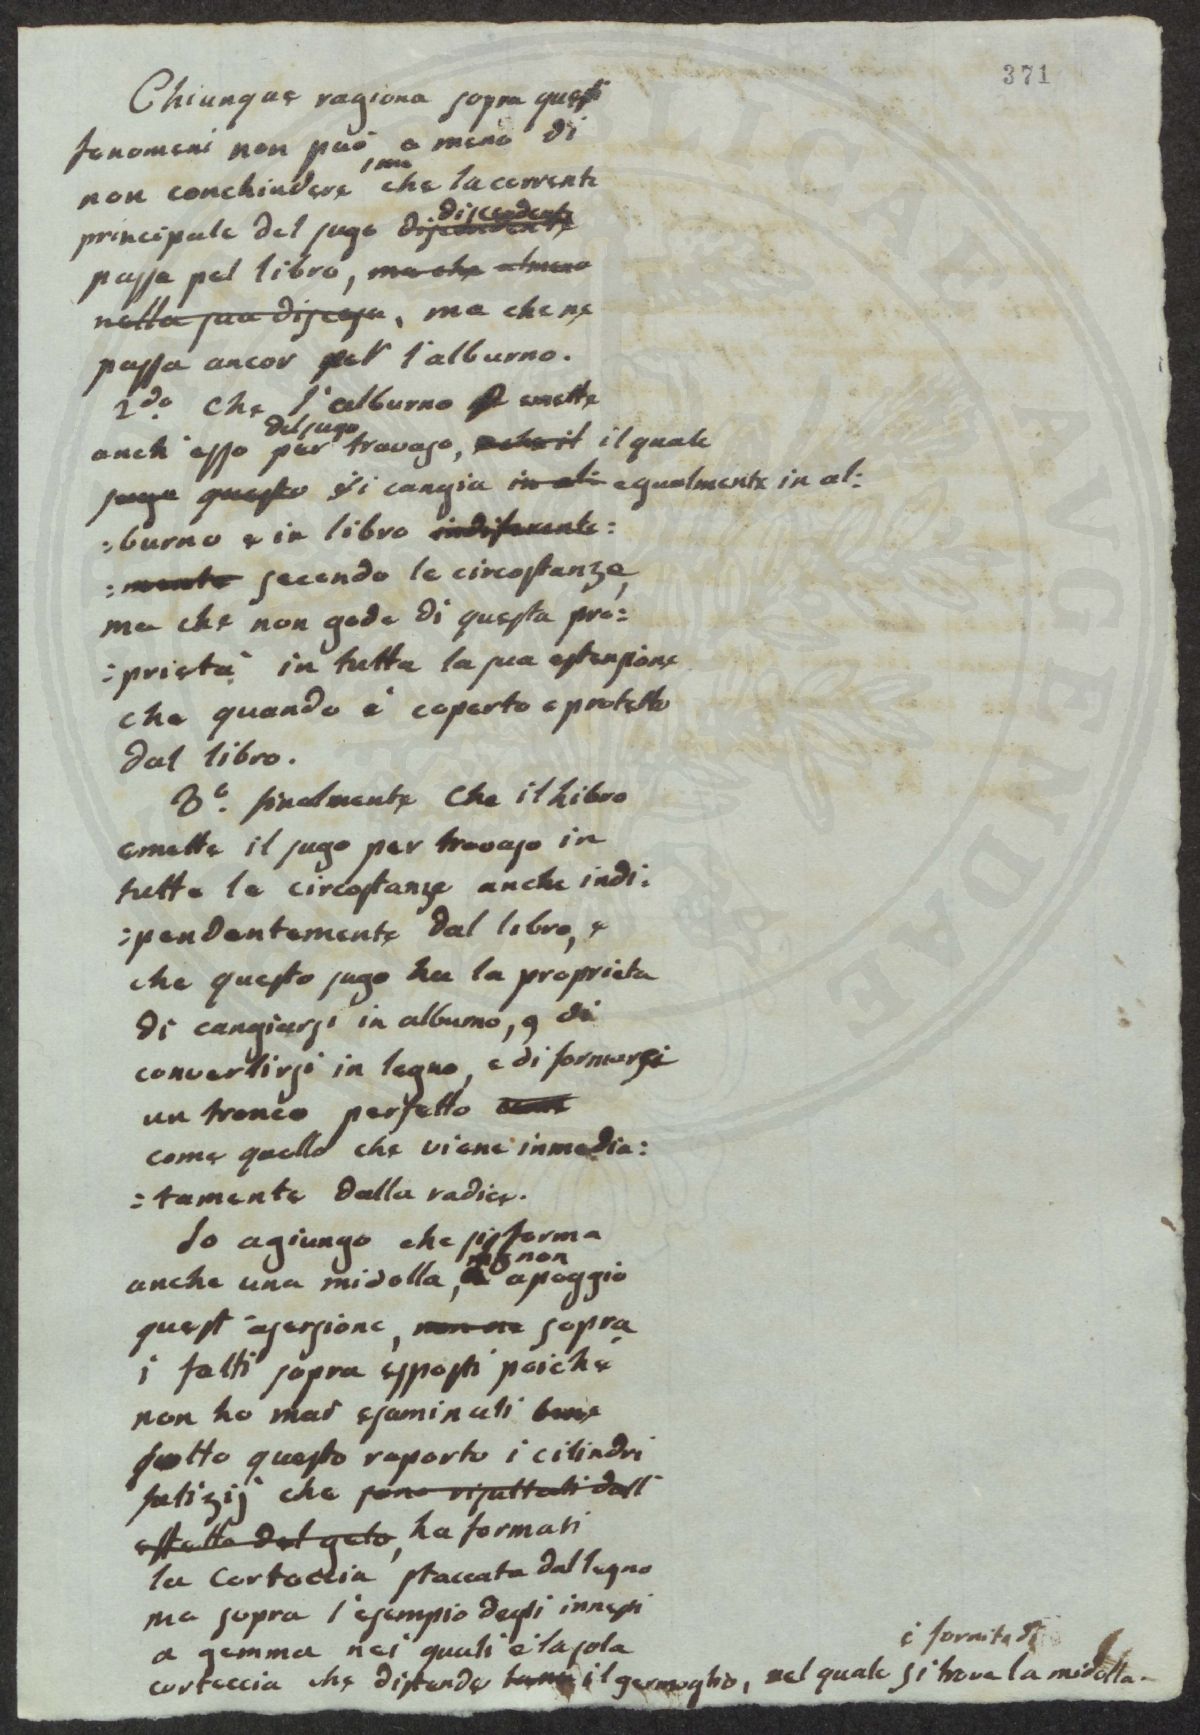 371
Chiunque ragiona sopra questi
fenomeni non può a meno di
non conchindere 1mo che la corrente
principale del sugo discendente discendente
passa pel libro, ma che almeno
nella sua discesa, ma che ne
passa ancor per l'alburno.
2do. che l'alburno emette
anch'esso del sugo per travaso, e che il il quale
sugo questo si cangia in al- egualmente in al:
:burno e in libro indiferente:
:mente secondo le circostanze,
ma che non gode di questa pro:
:prietà in tutta la sua estensione
che quando è coperto e protetto
dal libro.
3o. finalmente che il libro
emette il sugo per travaso in
tutte le circostanze anche indi:
:pendentemente dal libro, e
che questo sugo ha la proprieta
di cangiarsi in alburno, e di
convertirsi in legno, e di formarsi
un tronco perfetto come
come quello che viene inmedia:
:tamente dalla radice.
Io agiungo che si forma
anche una midolla, ma non apoggio
quest'asersione, non ne sopra
i fatti sopra esposti poichè
non ho mai esaminati bene
sotto questo raporto i cilindri
fatizij che sono risultati dall'
effetto del gelo, ha formati
la corteccia staccata dal legno
ma sopra l'esempio degli innesti
a gemma nei quali è la sola
è fornita di
corteccia che distende il germoglio, nel quale si trova la midolla.